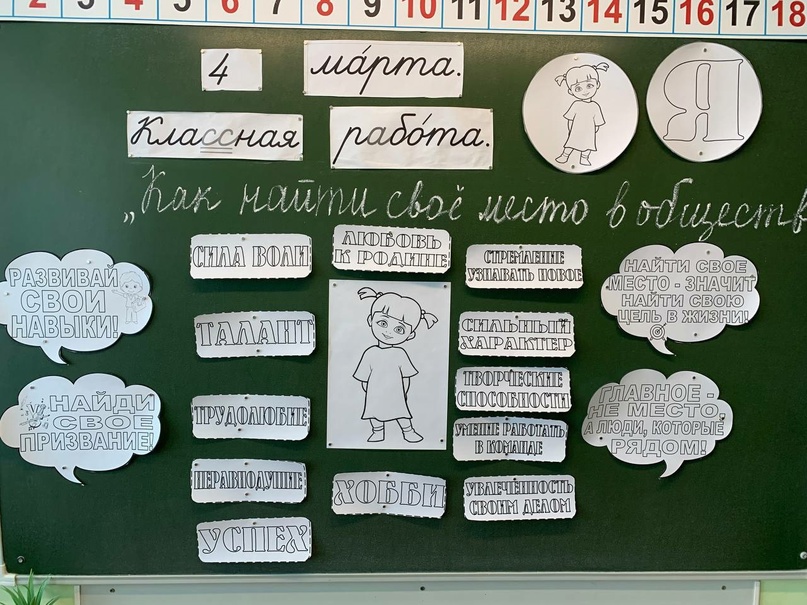 2 3 4 5 6 7 8 9 10 11 12 13 14 15 16 17 18
4 ма́рта.
Классная рабо́та.
Я
„Как найти своё место в обществ
РАЗВИВАЙ
СВОИ
НАВЫКИ!
НАЙДИ
СВОЕ
ПРИЗВАНИЕ!
СИЛА ВОЛИ
ТАЛАНТ
ТРУДОЛЮБИЕ
НЕРАВНОДУШИЕ
УСПЕХ
ЛЮБОВЬ
К РОДИНЕ
ХОББИ
СТРЕМЛЕНИЕ
УЗНАВАТЬ НОВОЕ
СИЛЬНЫЙ
ХАРАКТЕР
ТВОРЧЕСКИЕ
СПОСОБНОСТИ
УМЕНИЕ РАБОТАТЬ
В КОМАНДЕ
УВЛЕЧЁННОСТЬ
СВОИМ ДЕЛОМ
НАЙТИ СВОЕ
МЕСТО - ЗНАЧИТ
НАЙТИ СВОЮ
ЦЕЛЬ В ЖИЗНИ!
ГЛАВНОЕ -
НЕ МЕСТО,
А ЛЮДИ, КОТОРЫЕ
РЯДОМ!